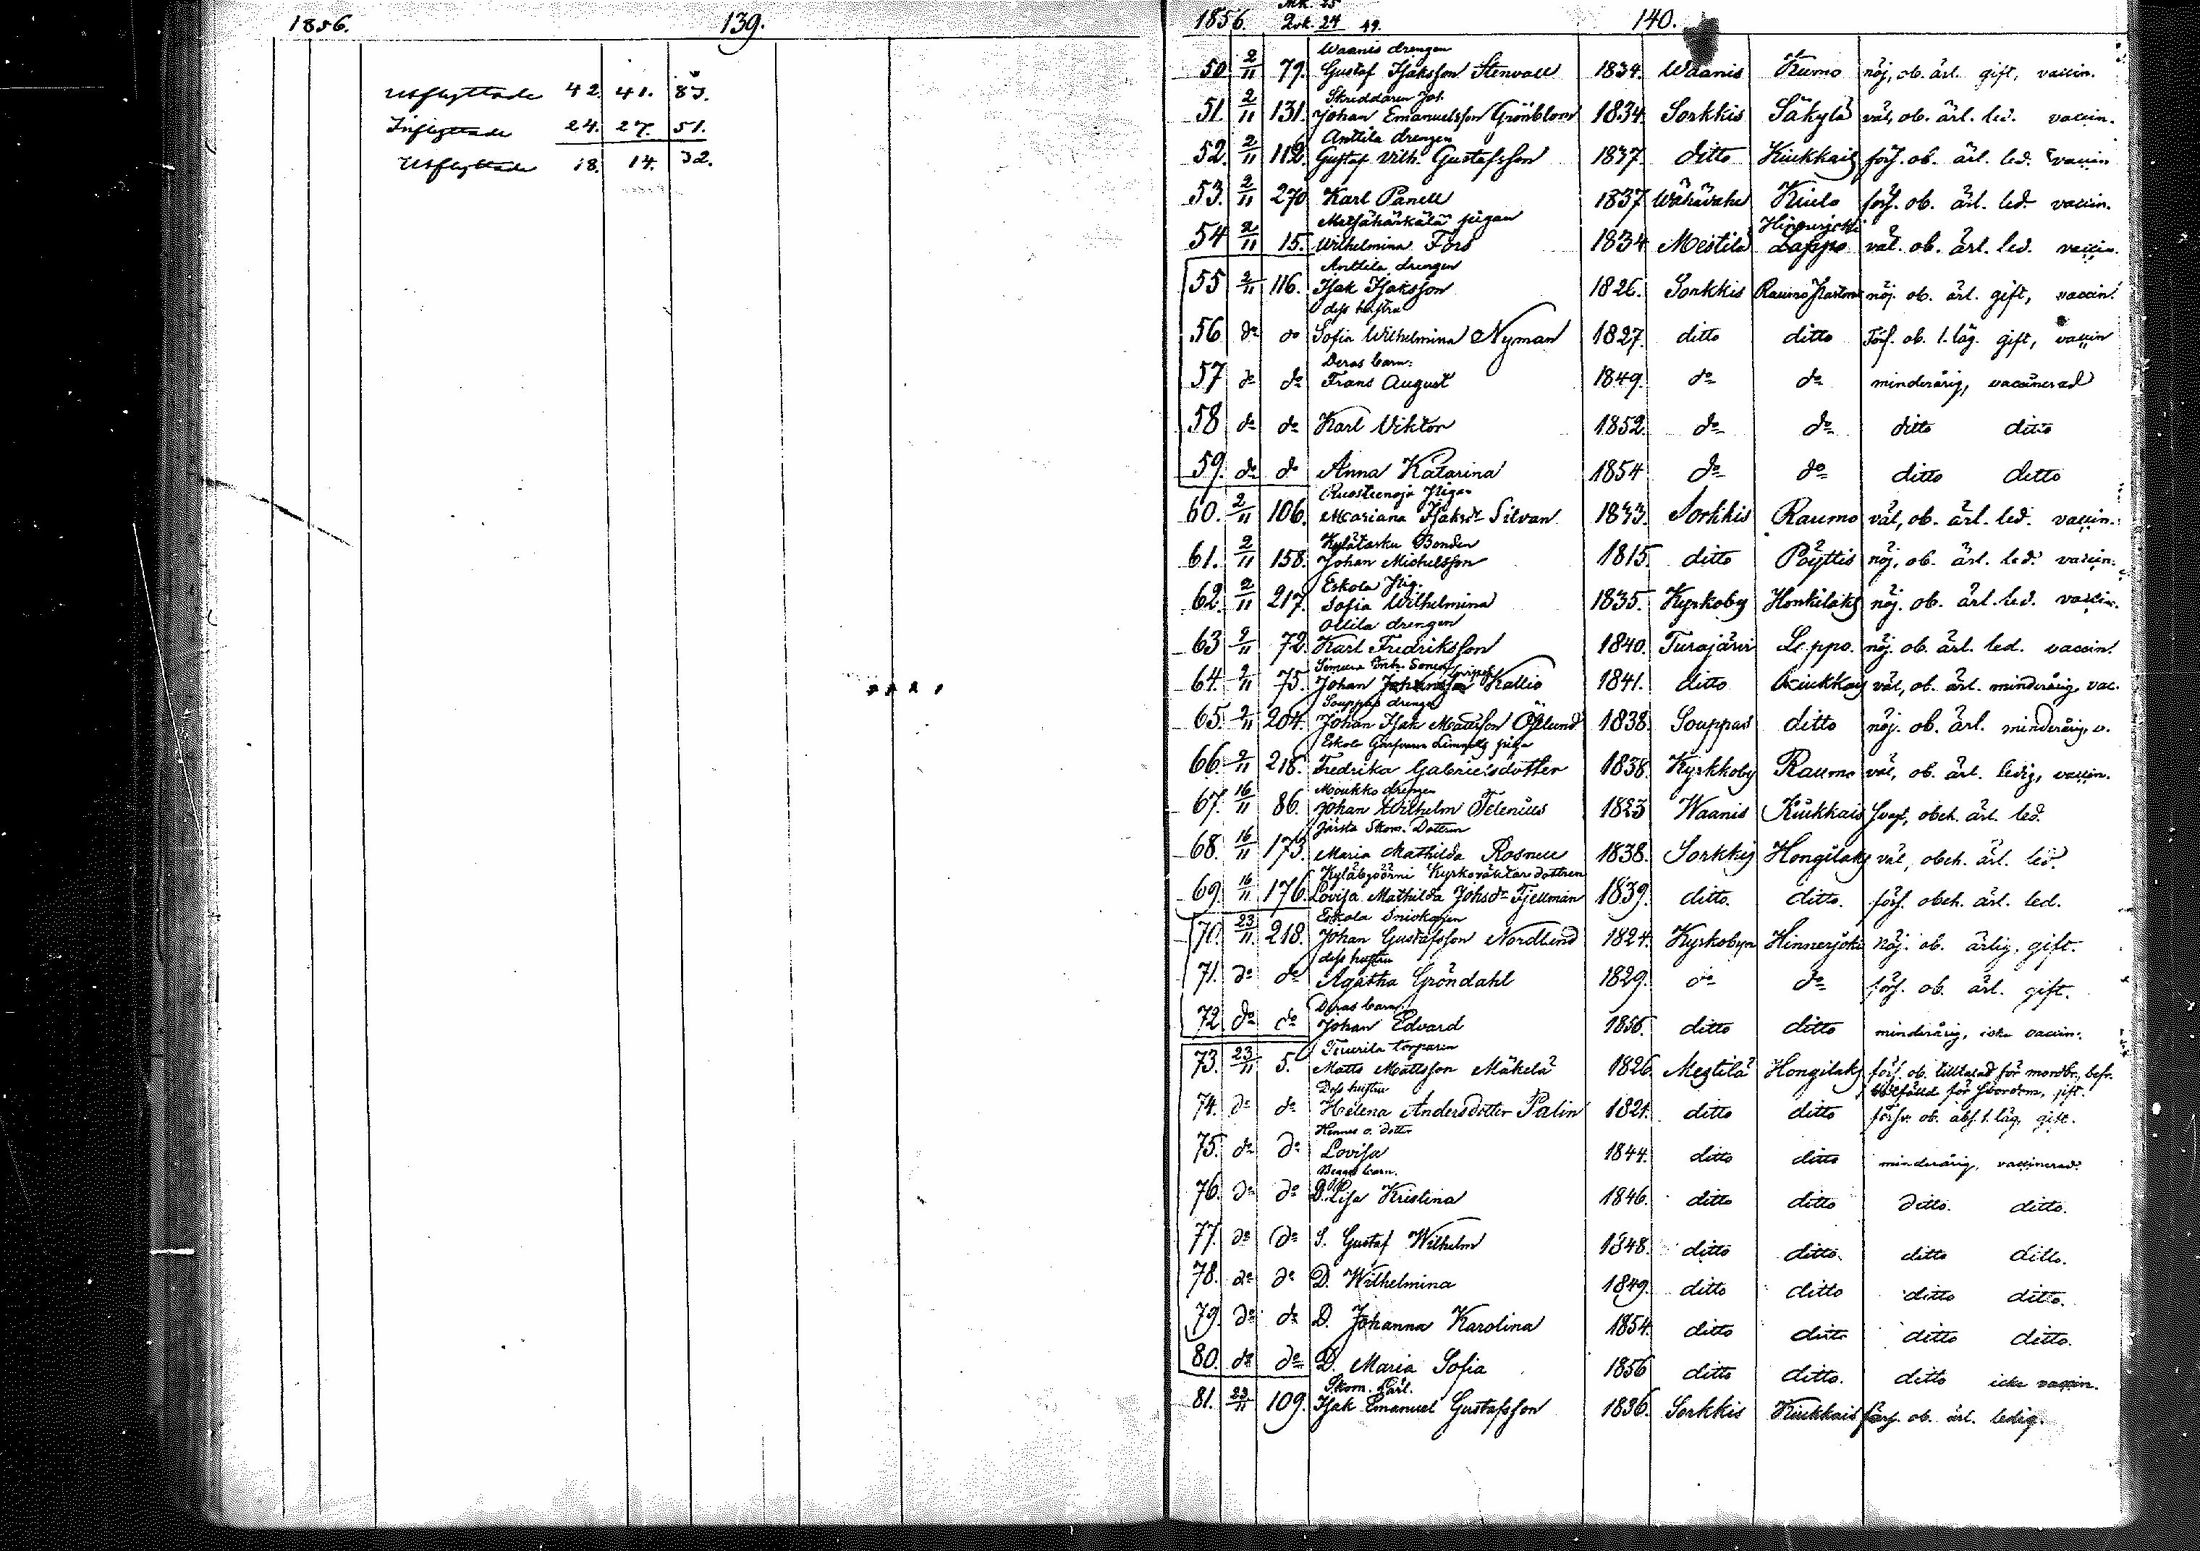 1856. 139.
Utflyttade 42. 41. 83.
Inflyttade 24. 27. 51.
Utflyttade 18. 14. 32.
1856. 24 49. 140.
Waanis drengen
50. 2/11 79. Gustaf Isaksson Stenvall 1834. Waanis Kumo nöj. ob. ärl. gift, vaccin.
Skreddaren Joh.
51. 2/11 131. Johan Emanuelsson Grönblom 1834. Sorkkis Säkylä väl, ob. ärl. led. vaccin.
Anttila drengen
52. 2/11 112. Gustaf Vilh. Gustafsson 1837. ditto Kiukkais förs. ob. ärl. led. vaccin
53. 2/11 270 Karl Panell 1837 Kiulo förs. ob. ärl. led. vaccin.
pigan Hinnerjoki
54 2/11 15. Wilhelmina Fors 1834 Mestilä Lappo väl. ob. ärl. led. vaccin.
Anttila drengen
55 2/11 116. Isak Isaksson 1826. Sorkkis Raumo nöj. ob. ärl. gift, vaccin.
dess hustru
56 do do Sofia Wilhelmina Nyman 1827. ditto ditto förs. ob. 1. läg. gift, vaccin
Deras barn:
57 do do Frans August 1849. do do minderårig, vaccinerad
58 do do Karl Viktor 1852. do do ditto ditto
59. do do Anna Katarina 1854 do do ditto ditto
Ruostienoja pigan
60. 2/11 106. Mariana Isaksdr Silvan 1833. Sorkkis Raumo väl, ob. ärl. led. vaccin.
Kylätasku Bonden
61. 2/11 158. Johan Michelsson 1815. ditto Pöyttis nöj, ob. ärl. led. vaccin.
Eskola Pig.
62. 2/11 217. Sofia Wilhelmina 1835. Kyrkoby Honkilaks nöj. ob. ärl. led. vaccin.
Ollila drengen
63 2/11 72. Karl Fredriksson 1840. Turajärvi Leppo. nöj. ob. ärl. led. vaccin.
Sonen
64. 2/11 75. Johan Kallio 1841. ditto Kiukkais väl, ob. ärl. minderårig, vac.
Souppas drengen
65. 2/11 204. Johan Isak Mattsson Östlund 1838. Souppas ditto nöj. ob. ärl. minderårig, v.
Eskola piga
66. 2/11 218. Fredrika Gabrielsdotter 1838. Kyrkkoby Raumo väl, ob. ärl. ledig, vaccin.
Moukko drengen
67. 16/11 86. Johan Wilhelm Telenius 1823 Waanis Kiukkais svag, obeh. ärl. led.
Järsta Skom. Dottren
68. 16/11 173. Maria Mathilda Rosnell 1838. Sorkkis Hongilaks väl, obeh. ärl. led.
Kyrkoväktar dottren
69. 16/11 176. Lovisa Mathilda Johsdr Fjellman 1839. ditto. ditto. förs. obeh. ärl. led.
Eskola Snickaren
70. 23/11 218. Johan Gustafsson Nordlund 1824. Kyrkobyn Hinnerjoki nöj. ob. ärlig, gift.
dess hustru
71. do do Agatha Gröndahl 1829. do do förs. ob. ärl. gift.
Deras barn:
72 do do Johan Edvard 1856. ditto ditto minderårig, icke vaccin.
torparen
73. 23/11 5. Matts Mattsson Mäkelä 1826 Mestilä Hongilaks förs. ob. tilltalad för mordbr., befr.
Dess hustru för gift.
74. do do Helena Andersdotter Palin 1821. ditto ditto försv. ob. abs. 1. läg. gift.
Hennes o. dotter
75. do do Lovisa 1844. ditto ditto minderårig, vaccinerad.
Begges barn.
76. do do D. Lisa Kristina 1846. ditto ditto ditto. ditto.
77. do do S. Gustaf Wilhelm 1848. ditto ditto. ditto ditto.
78. do do D. Wilhelmina 1849. ditto ditto ditto ditto.
79. do do D. Johanna Karolina 1854. ditto ditto ditto ditto.
80. do do D. Maria Sofia 1856 ditto ditto. ditto icke vaccin.
Skom. Lärl.
81. 23/11 109. Isak Emanuel Gustafsson 1836. Sorkkis Kiukkais förs. ob. ärl. ledig.